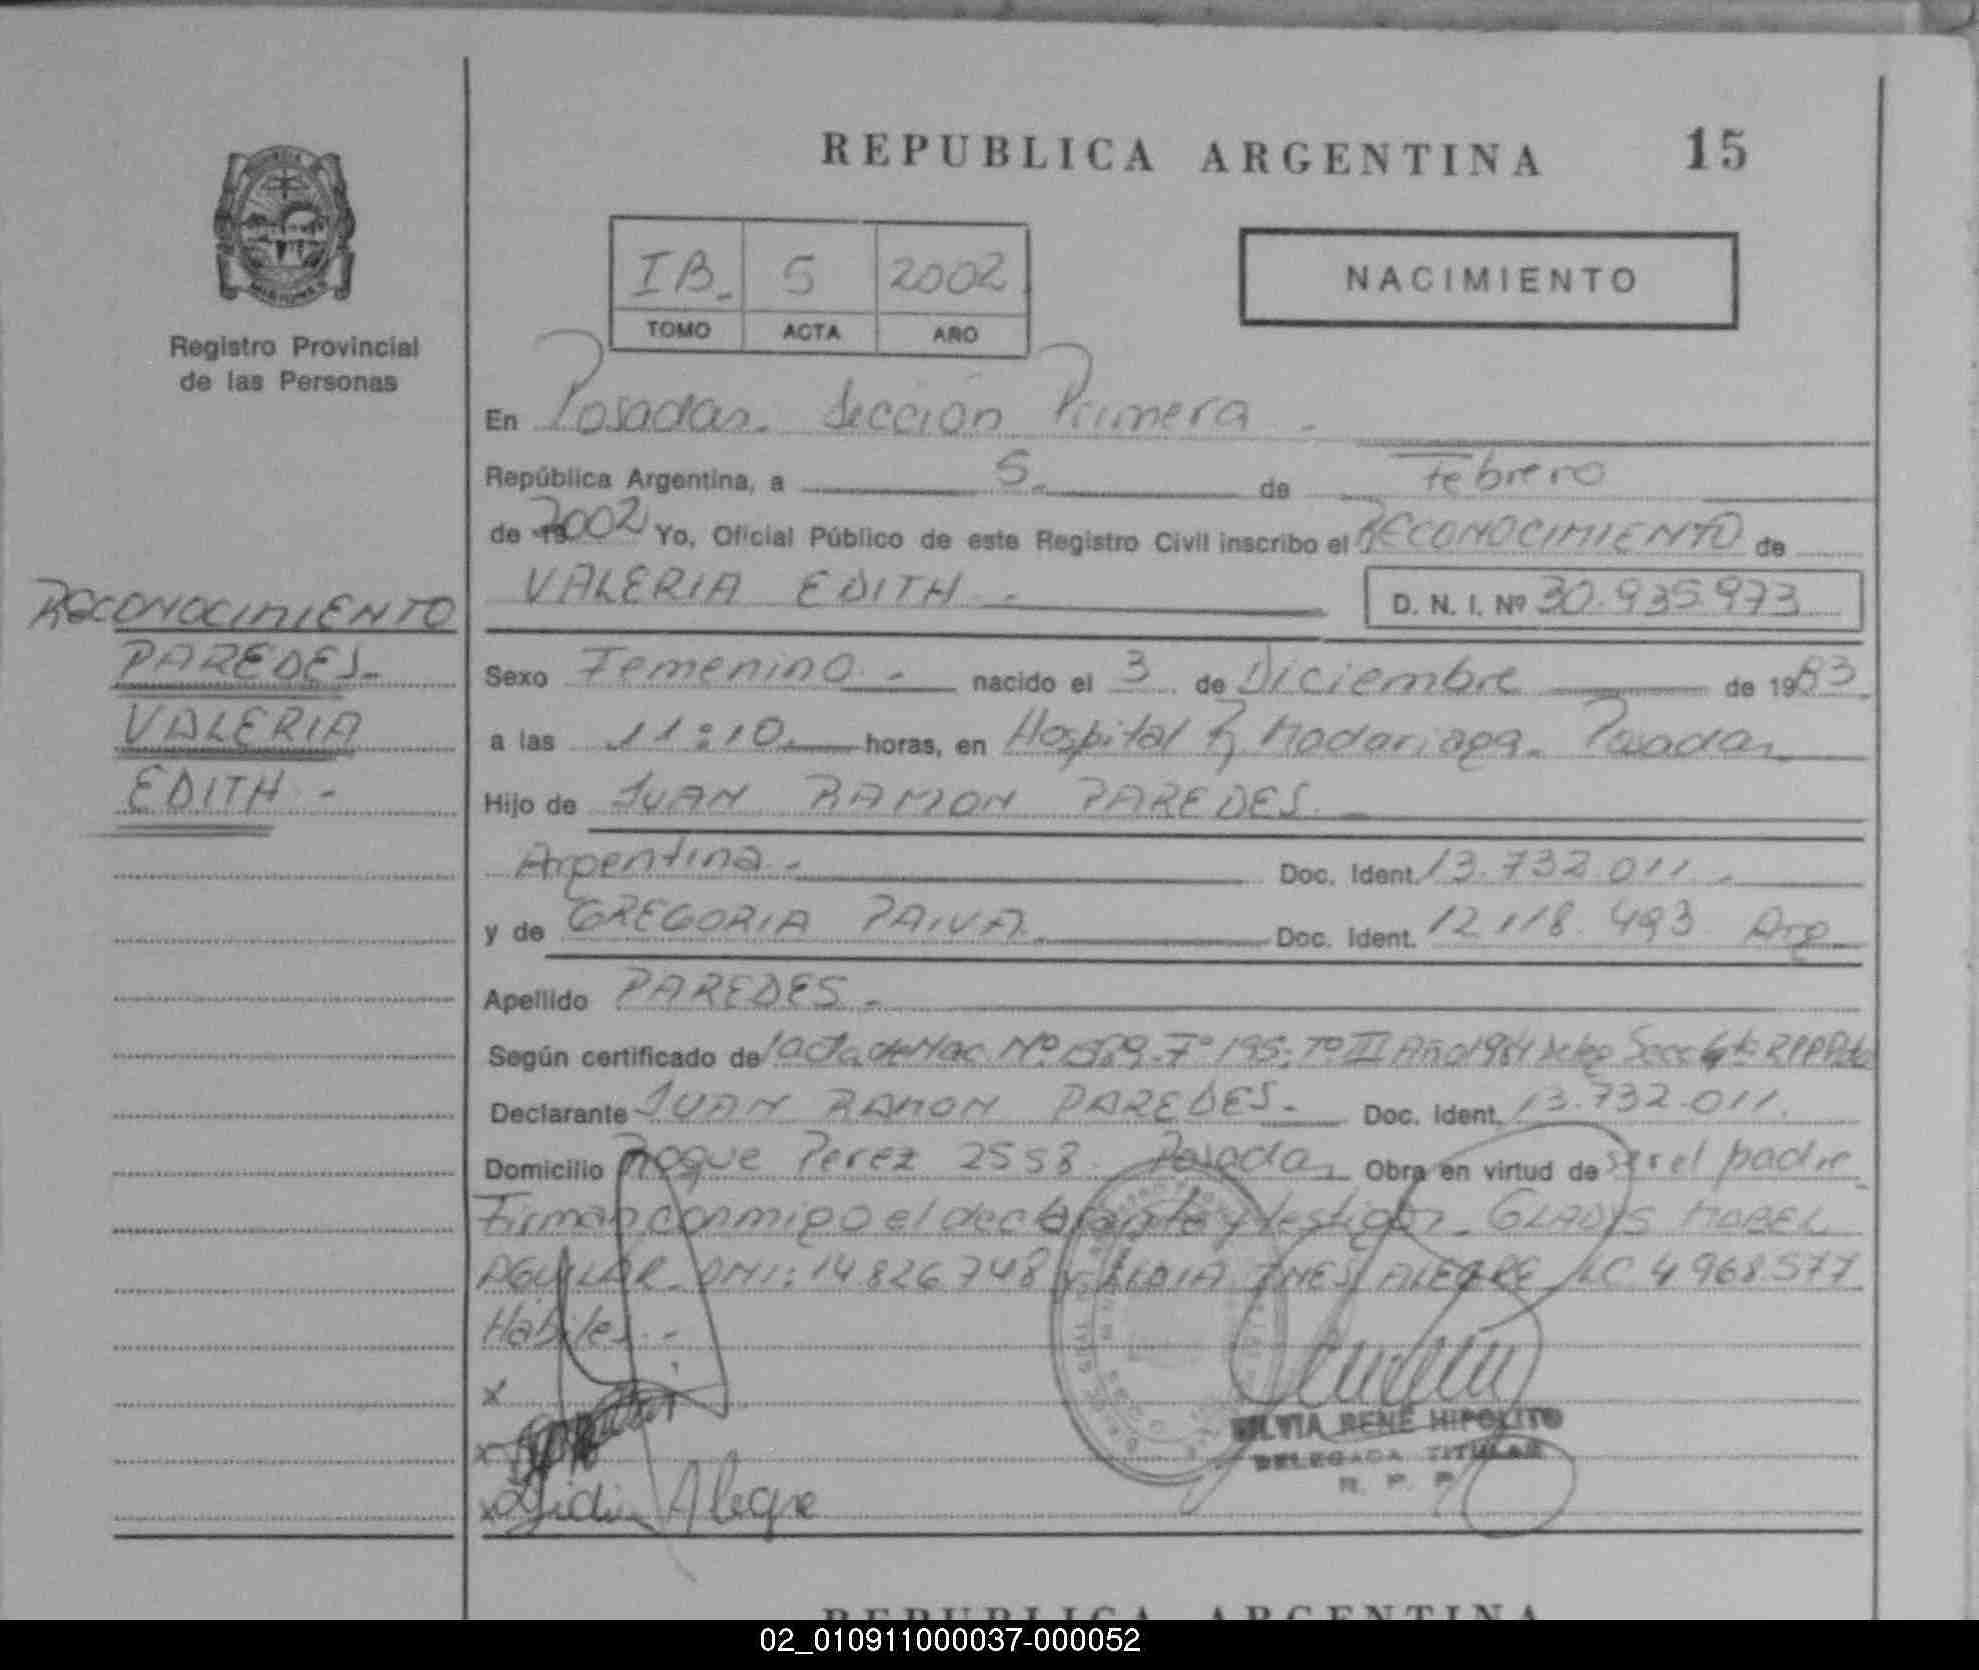 REPUBLICA ARGENTINA 15
IB. 5 2002
TOMO ACTA AÑO
NACIMIENTO
Registro Provincial
de las Personas
En Posadas. Sección Primera.
República Argentina, a 5 de Febrero
de 2002 Yo, Oficial Público de este Registro Civil inscribo el RECONOCIMIENTO de
VALERIA EDITH - D. N. I. Nº 30.935.973
RECONOCIMIENTO
PAREDES-
VALERIA
EDITH -
Sexo Femenino. - nacido el 3 de Diciembre de 1983
a las 11:10 horas, en Hospital R Madariaga. Posadas
Hijo de JUAN RAMON PAREDES. -
Argentina. - Doc. Ident. 13.732.011. -
y de GREGORIA PAIVA Doc. Ident. 12.118.493 Arg
Apellido PAREDES. -
Según certificado de Nº 1569. Fº 195. Tº II Año 1984
Declarante JUAN RAMON PAREDES. - Doc. Ident. 13.732.011.
Domicilio Roque Perez 2558. Posadas Obra en virtud de ser el padre
Firman conmigo el declarante y testigos. GLADYS MABEL
AGUILAR DNI: 14.826.748 y LIDIA INES ALEGRE LC 4.968.577
Hábiles. -
x
x
x Lidia Alegre
SILVIA RENÉ HIPOLITO
DELEGADA TITULAR
R. P. P.
REPUBLICA ARGENTINA
02_010911000037-000052